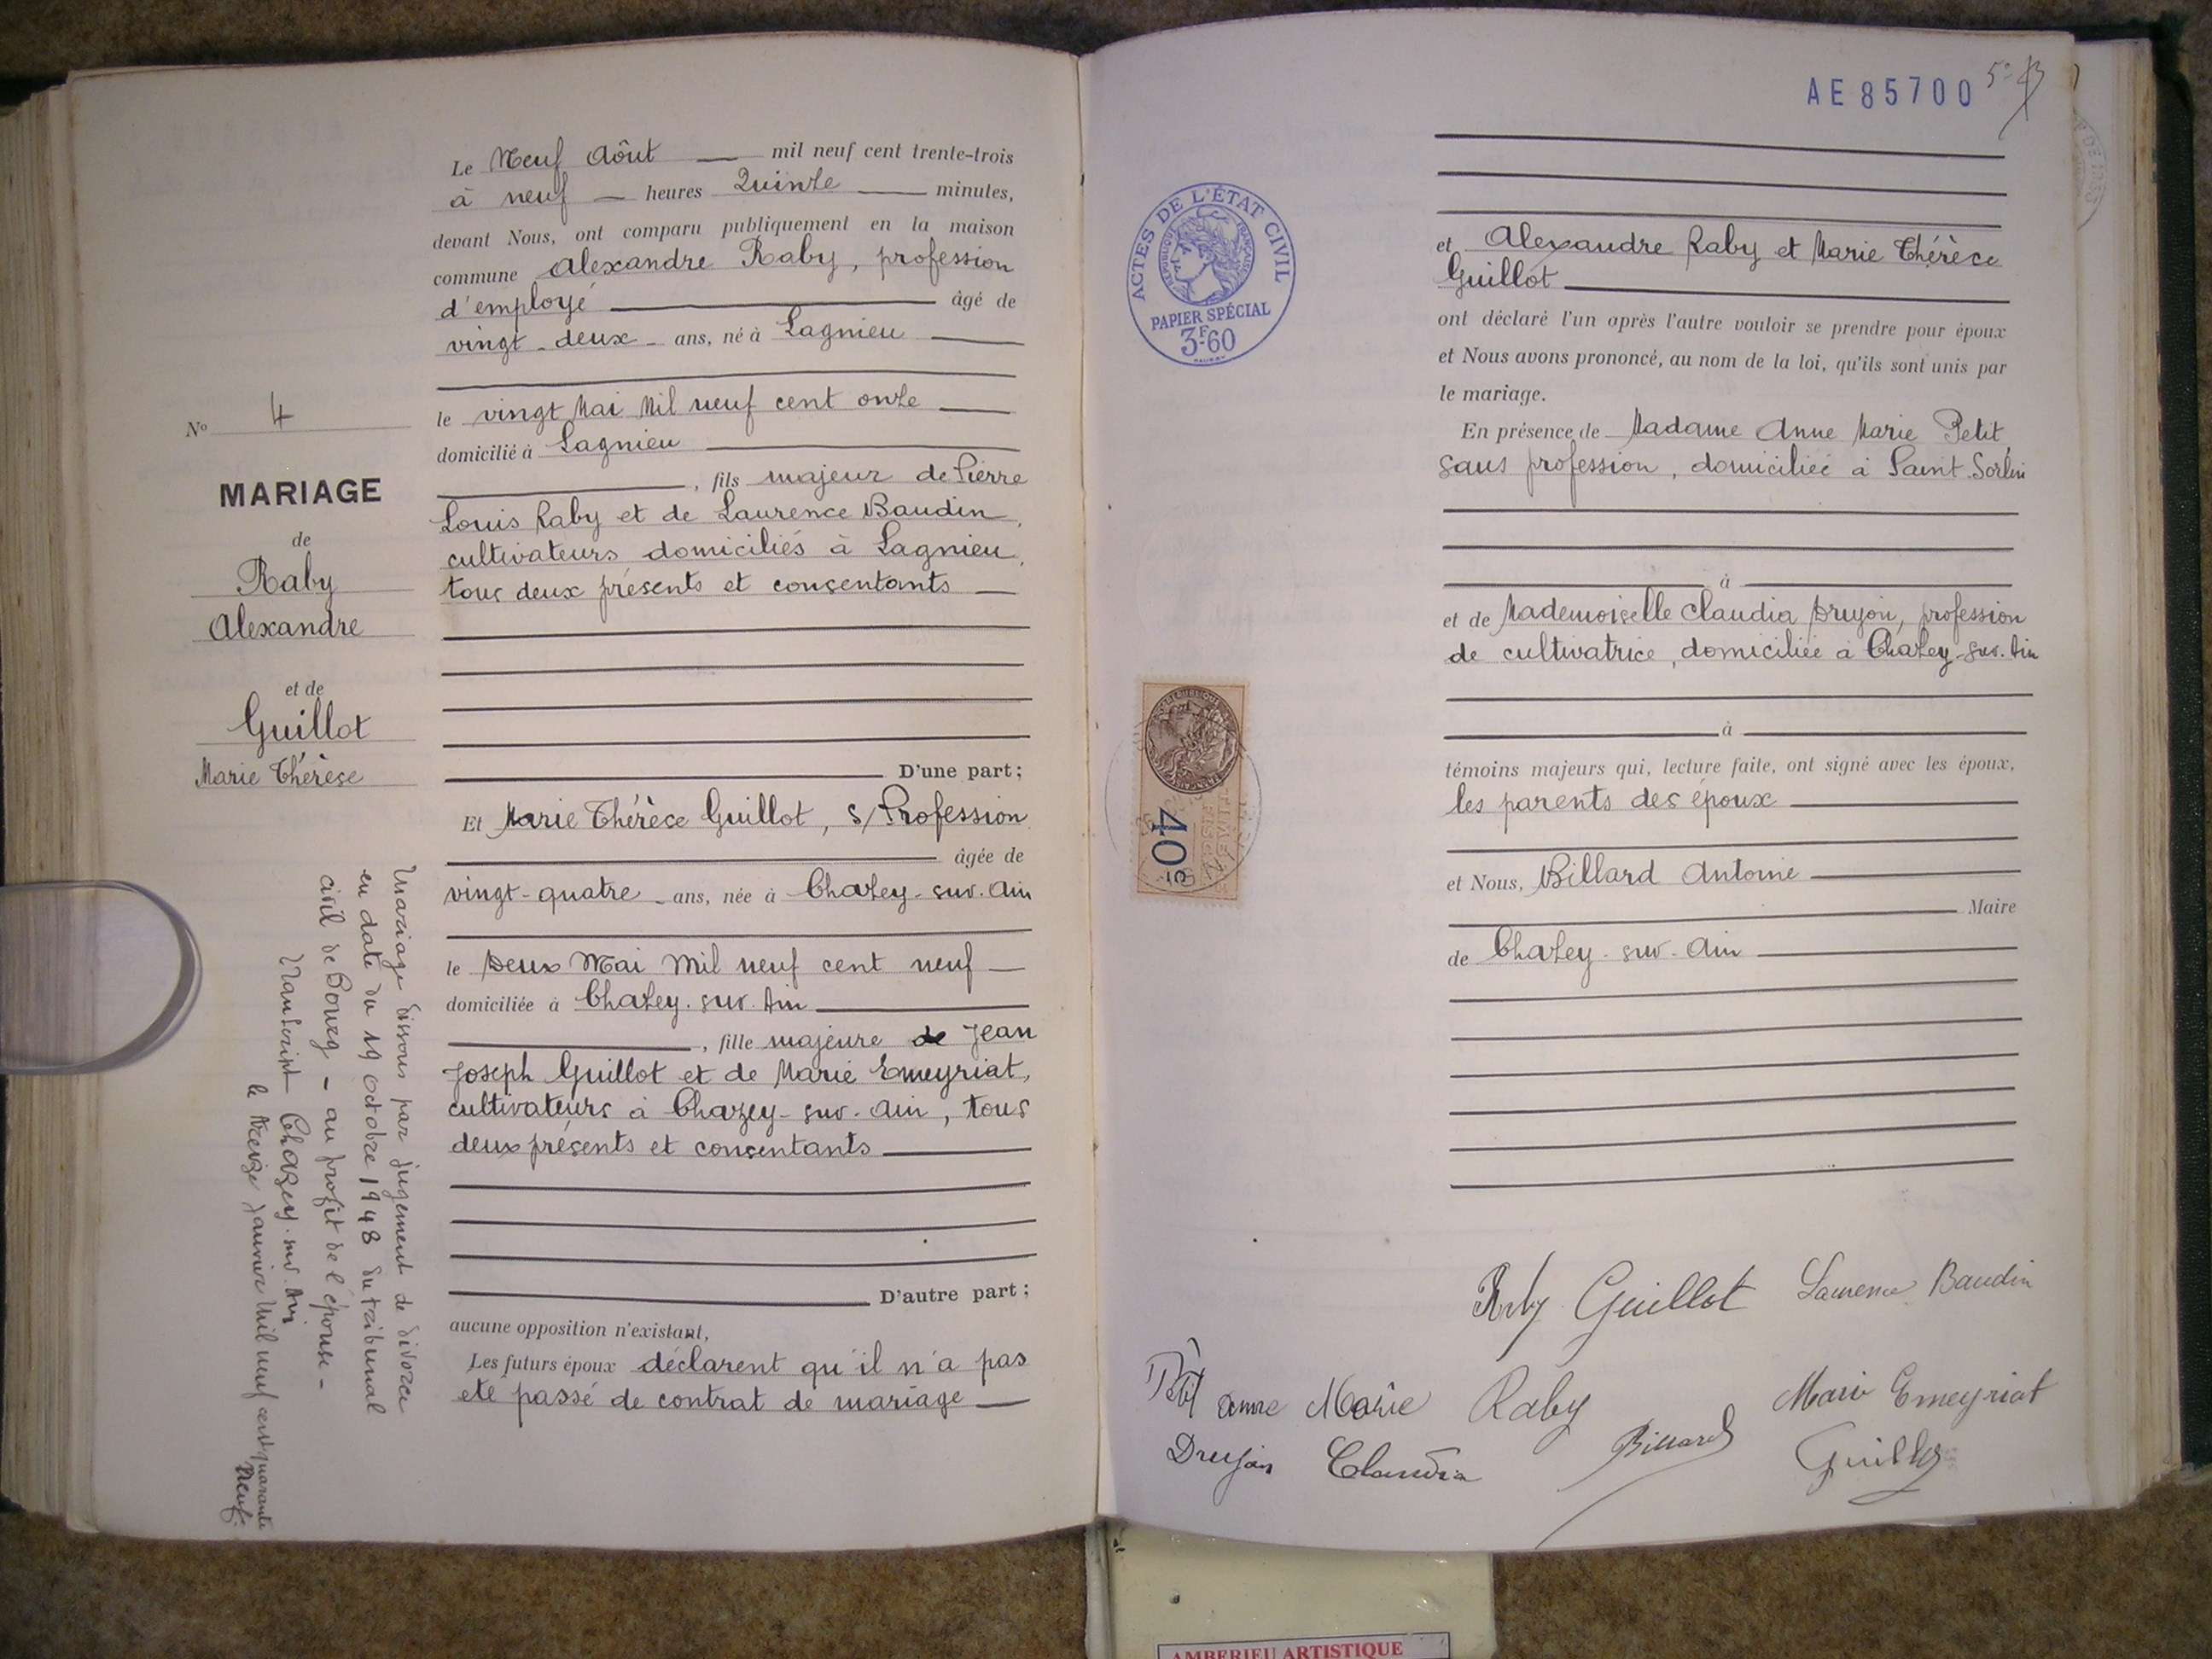 N° 4
MARIAGE
de
Raby
Alexandre
et de
Guillot
Marie Thérèse
Mariage dissous par jugement de divorce
en date du 19 octobre 1948 du tribunal
civil de Bourg - au profit de l'épouse -
Chazey-sur-Ain
le treize janvier mil neuf cent quarante
neuf.
Le Neuf Aôut mil neuf cent trente-trois
à neuf heures Quinze minutes,
devant Nous, ont comparu publiquement en la maison
commune Alexandre Raby, profession
d'employé âgé de
vingt-deux ans, né à Lagnieu
le vingt Mai Mil neuf cent onze
domicilié à Lagnieu
, fils majeur de Pierre
Louis Raby et de Laurence Baudin,
cultivateurs domiciliés à Lagnieu,
tous deux présents et consentants
D'une part;
Et Marie Thérèse Guillot, S/ Profession
âgée de
vingt-quatre ans, née à Chazey-sur-Ain
le Deux Mai Mil neuf cent neuf
domiciliée à Chazey-sur-Ain
, fille majeure de Jean
Joseph Guillot et de Marie Emeyriat,
cultivateurs à Chazey-sur-Ain, tous
deux présents et consentants
D'autre part;
aucune opposition n'existant,
Les futurs époux déclarent qu'il n'a pas
eté passé de contrat de mariage
AE 85700
ACTES DE L'ÉTAT CIVIL
RÉPUBLIQUE FRANÇAISE
PAPIER SPÉCIAL
3F60
40
et Alexandre Raby et Marie Thérèse
Guillot
ont déclaré l'un après l'autre vouloir se prendre pour époux
et Nous avons prononcé, au nom de la loi, qu'ils sont unis par
le mariage.
En présence de Madame Anne Marie Petit,
sans profession, domiciliée à Saint-Sorlin
à
et de Mademoiselle Claudia Drujon, profession
de cultivatrice, domiciliée à Chazey-sur-Ain
à
témoins majeurs qui, lecture faite, ont signé avec les époux,
les parents des époux
et Nous, Billard Antoine
Maire
de Chazey-sur-Ain
Raby Guillot Laurence Baudin
Petit Anne Marie Raby Marie Emeyriat
Drujon Claudia Billard Guillot
AMBERIEU ARTISTIQUE